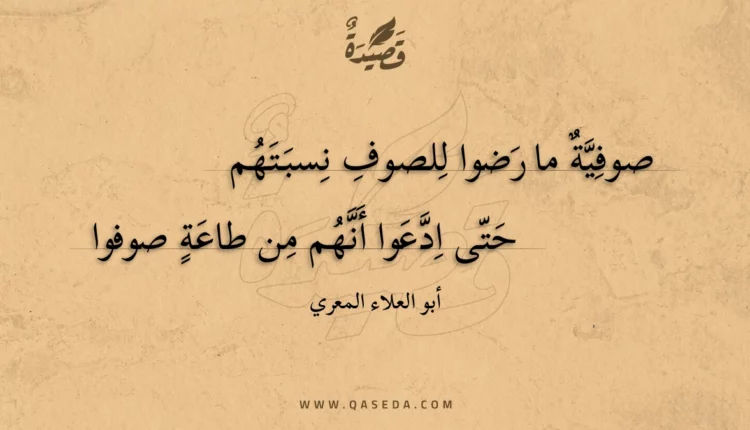 قَصِيْدَةٌ
صوفِيَّةٌ ما رَضوا لِلصوفِ نِسبَتَهُم
حَتّى اِدَّعَوا أَنَّهُم مِن طاعَةٍ صوفوا
أبو العلاء المعري
WWW.QASEDA.COM